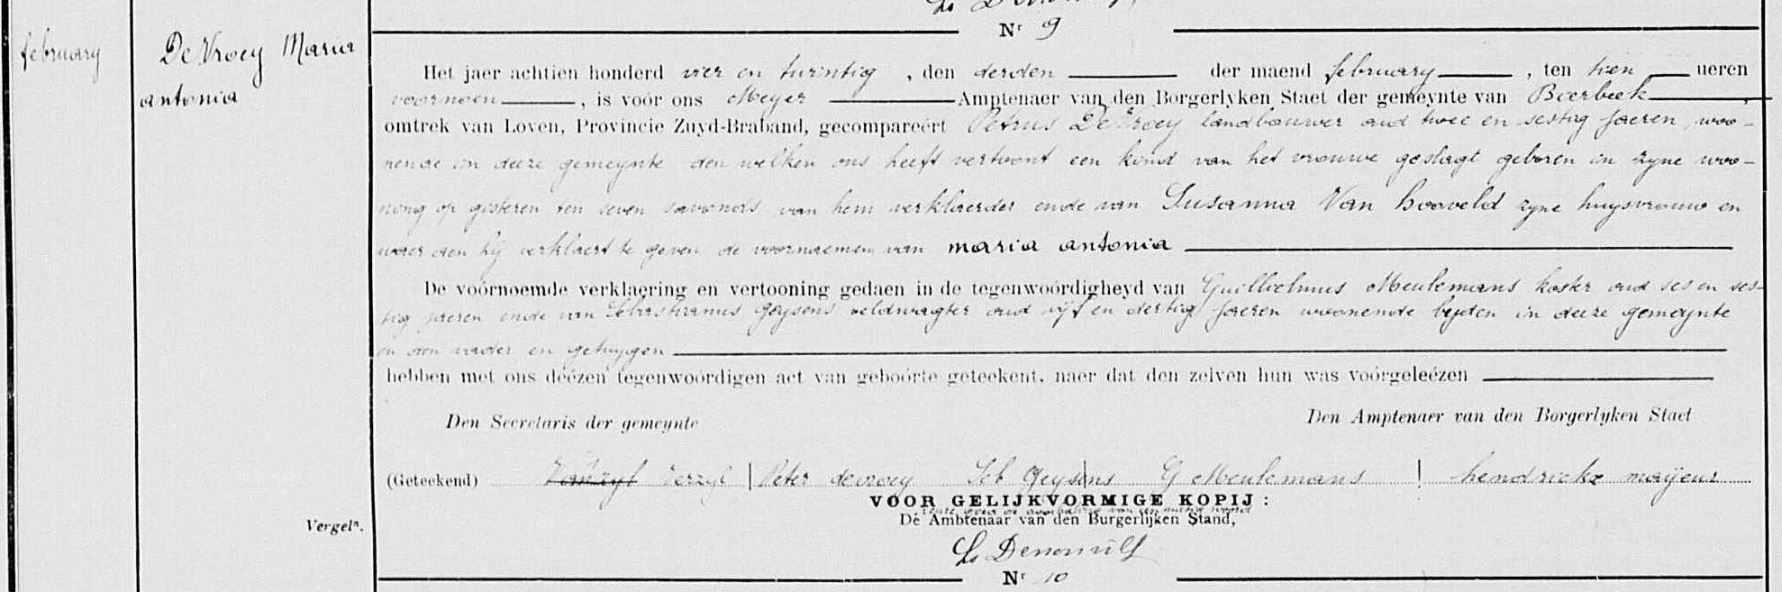 Nr 9
february
De Vroey Maria
antonia
Het jaer achtien honderd vier en twintig, den derden der maend february, ten tien ueren
voornoen, is voór ons Meyer Amptenaer van den Borgerlyken Staet der gemeynte van Bierbeek,
omtrek van Loven, Provincie Zuyd-Braband, gecompareért Petrus De Vroey landbouwer oud twee en sestig jaeren, woo-
nende in deeze gemeynte den welken ons heeft vertoont een kind van het vrouwe geslagt geboren in zyne woo-
ning op gisteren ten seven savonds van hem verklaerder ende van Susanna Van hooveld zyne huysvrouw en
waer aen hij verklaert te geven de voornaemen van maria antonia
De voórnoemde verklaering en vertooning gedaen in de tegenwoórdigheyd van Guillielmus Meulemans koster oud ses en ses-
tig jaeren ende van Sebastianus Geysens veldwagter oud vijf en dertig jaeren woonende beyden in deeze gemeynte
en den vader en getuygen
hebben met ons deézen tegenwoórdigen act van geboórte geteekent, naer dat den zelven hun was voórgeleézen
Den Secretaris der gemeynte Den Amptenaer van den Borgerlyken Staet
(Geteekend) Verzyl Peter devroey Seb Geysens G Meulemans hendrickx maijeur
VOOR GELIJKVORMIGE KOPIJ :
Vergeln. De Ambtenaar van den Burgerlijken Stand,
Nr 10